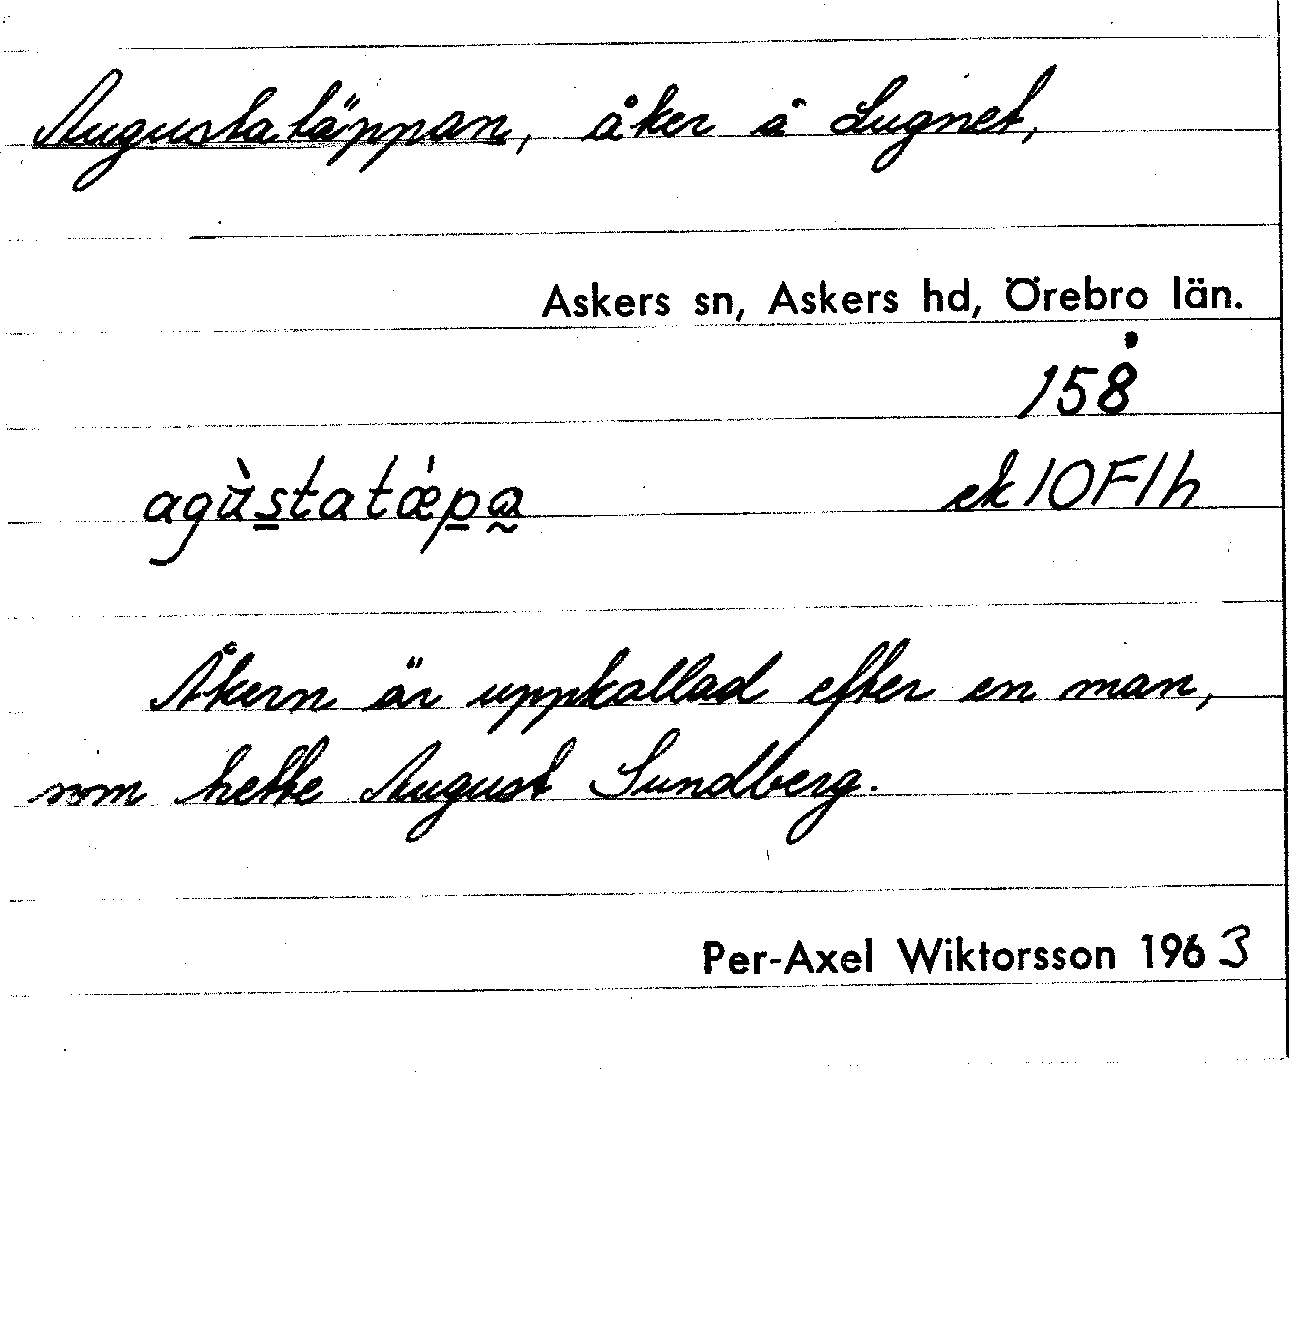 Augustatäppan, åker å Lugnet,
Askers sn, Askers hd, Örebro län.
158
agùstatǽpa
ek 10F1h
Åkern är uppkallad efter en man,
som hette August Sundberg.
Per-Axel Wiktorsson 1963